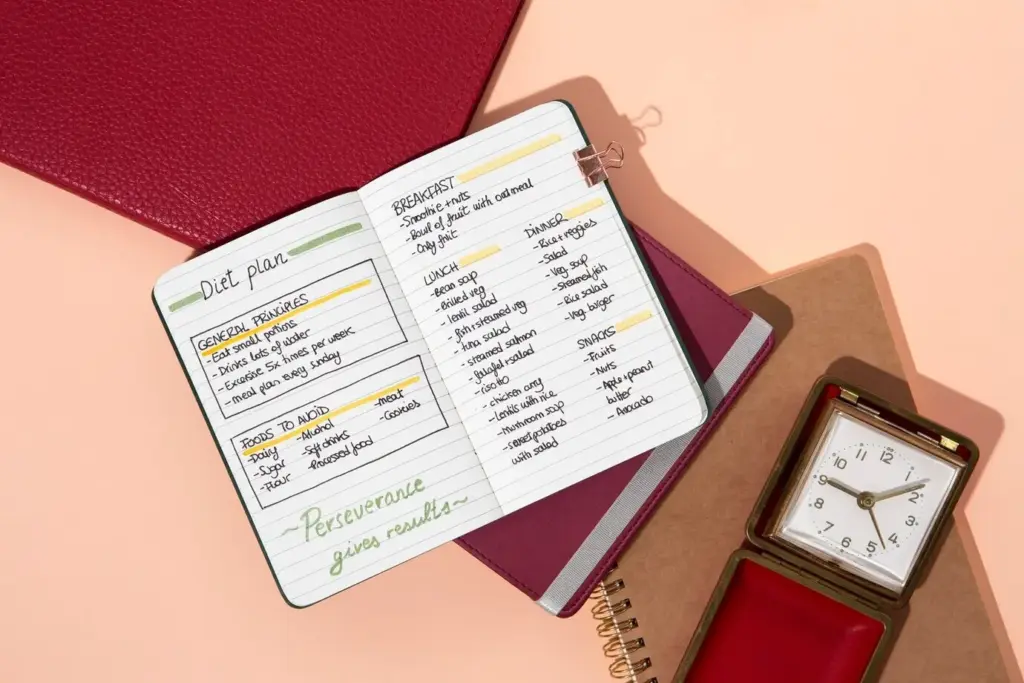 Diet plan
GENERAL PRINCIPLES
-Eat small portions
-Drinks lots of water
-Excersise 5x times per week
-meal plan every sunday
FOODS TO AVOID
-Daily
-Sugar
-Flour
-Alcohol
-Soft drinks
-Processed food
-meat
-Cookies
~Perseverance
gives results~
BREAKFAST
-Smoothie+nuts
-Bowl of fruit with oatmeal
-Only fruit
LUNCH
-Bean soup
-Grilled veg
-lentil salad
-fish+steamed veg
-tuna salad
-steamed salmon
-falafel+salad
-risotto
-chicken curry
-Lentils with rice
-mushroom soup
-sweet potatoes
with salad
DINNER
-Rice+veggies
-Salad
-Veg soup
-Steamed fish
-Rice salad
-Veg burger
SNACKS
-Fruits
-Nuts
-Apple+peanut
butter
-Avocado
12
1
2
3
4
5
6
7
8
9
10
11